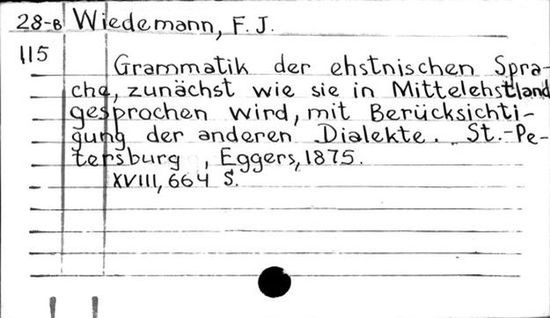 28-B Wiedemann, F. J.
115
Grammatik der ehstnischen Spra-
che, zunächst wie sie in Mittelehstland
gesprochen wird, mit Berücksichti-
gung der anderen Dialekte. St.-Pe-
tersburg, Eggers, 1875.
XVIII, 664 S.